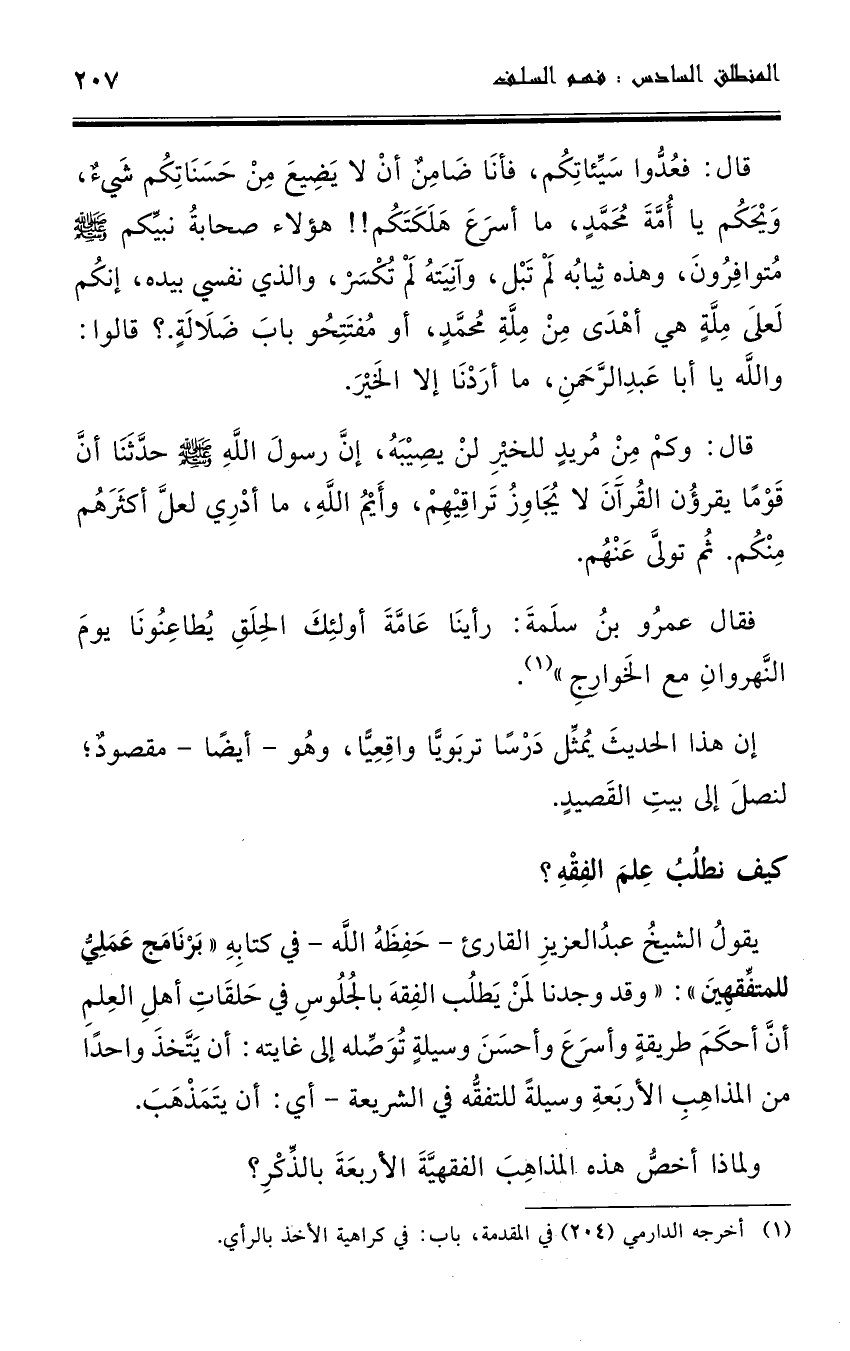 المنطلق السادس : فهم السلف ٢٠٧
قال: فعُدُّوا سَيِّئاتِكُم، فأنَا ضَامِنٌ أنْ لا يَضِيعَ مِنْ حَسَنَاتِكُم شَيءٌ،
وَيْحَكُم يا أُمَّةَ مُحَمَّدٍ، ما أسرَعَ هَلَكَتَكُم!! هؤلاء صحابةُ نبيِّكم ﷺ
مُتوافِرُونَ، وهذه ثِيابُه لَمْ تَبْل، وآنِيَتهُ لَمْ تُكْسَرْ، والذي نفسي بيده، إنكُم
لَعلَى مِلَّةٍ هي أهْدَى مِنْ مِلَّةِ مُحمَّدٍ، أو مُفتَتِحُو بابَ ضَلَالَةٍ.؟ قالوا:
واللَّه يا أبا عَبدِالرَّحمَنِ، ما أرَدْنَا إلا الخَيْرَ.
قال: وكمْ مِنْ مُريدٍ للخيْرِ لنْ يصِيْبَهُ، إنَّ رسولَ اللَّهِ ﷺ حدَّثَنَا أنَّ
قَوْمًا يقرؤُن القُرآَنَ لا يُجَاوِزُ تَراقِيَهِمْ، وأَيْمُ اللَّهِ، ما أدْرِي لعلَّ أكثَرَهُم
مِنْكُم. ثُم تولىَّ عَنْهُم.
فقال عمرُو بنُ سلَمةَ: رأينَا عَامَّةَ أولئِكَ الحِلَقِ يُطاعِنُونَا يومَ
النَّهروانِ مع الخَوارِجِ »(١).
إن هذا الحديثَ يُمثِّل دَرْسًا تربَويًّا واقعِيًّا، وهُو - أيضًا - مقصودٌ؛
لنصلَ إلى بيتِ القَصيدِ.
كيف نطلُبُ عِلمَ الفِقْهِ؟
يقولُ الشيخُ عبدُالعزيزِ القارئ - حَفِظَهُ اللَّه - في كتابِهِ « بَرْنَامَج عَمَليٌّ
للمتفِّقهِينَ»: « وقد وجدنا لمَنْ يَطلُب الفِقهَ بالجُلُوسِ في حَلقَاتِ أهلِ العِلمِ
أنَّ أحكَمَ طريقةٍ وأسرَعَ وأحسَنَ وسيلةٍ تُوَصِّله إلى غايته: أن يَتَّخذَ واحدًا
من المذاهِبِ الأربَعةِ وسيلةً للتفقُّه في الشريعة - أي: أن يتَمَذْهَبَ.
ولماذا أخصُّ هذه المذاهِبَ الفقهيَّةَ الأربعَةَ بالذِّكْرِ؟
(١) أخرجه الدارمي (٢٠٤) في المقدمة، باب: في كراهية الأخذ بالرأي.